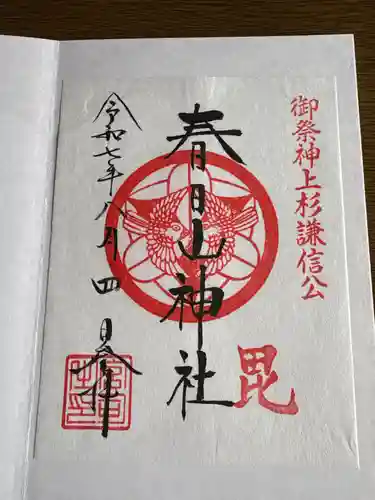 御祭神上杉謙信公
毘
春日山神社
令和七年八月四日参拝